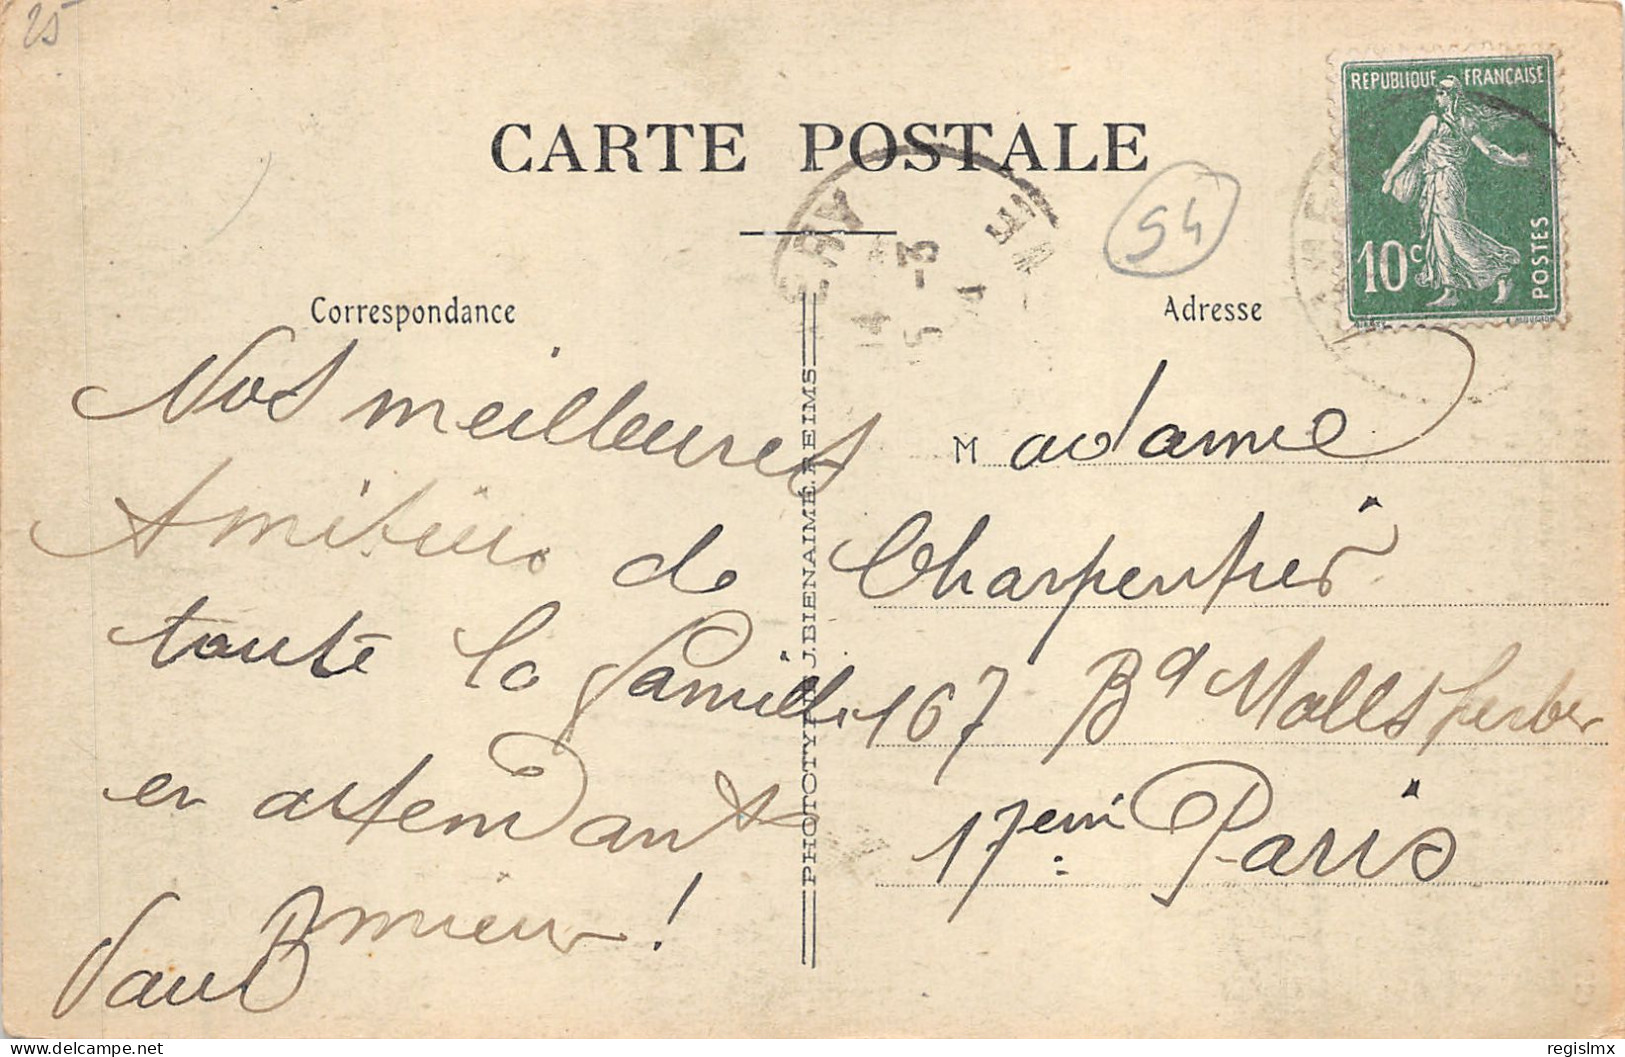 25
CARTE POSTALE
REPUBLIQUE FRANÇAISE
10c
POSTES
54
Correspondance
Adresse
Nos meilleures
Amitiés de
toute la famille
en attendant
mieux !
PHOTOTYPIE J. BIENAIMÉ, REIMS
Madame
Charpentier
167 Bd Mallsherber
17eme Paris
delcampe.net
regislmx